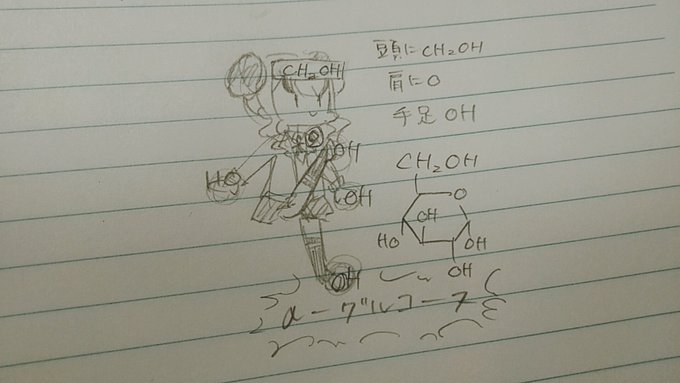 頭にCH2OH
肩にO
手足OH
CH2OH
O
OH
HO
OH
OH
CH2OH
O
OH
HO
OH
OH
α-グルコース